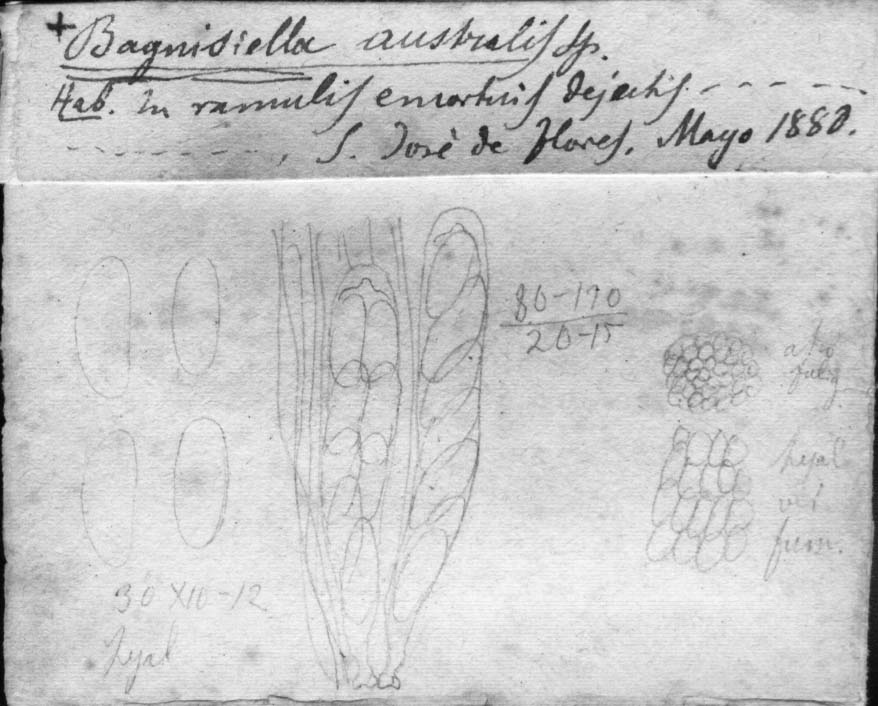 +Bagnisiella australis Sp.
Hab. In ramulis emortuis dejectis - - - -
- - - - - - - , S. José de Flores. Mayo 1880.
80-170
20-15
atro
fulig
hyal
vel
fum.
30 X 10-12
hyal